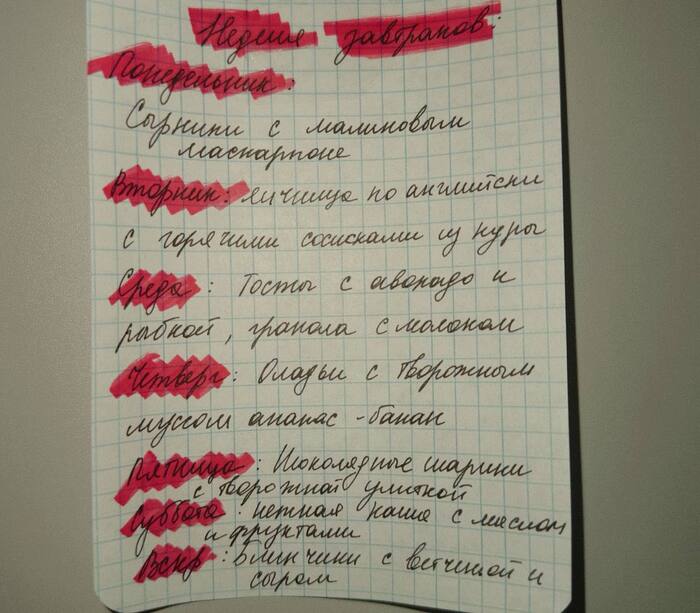 Неделя завтраков:
Понедельник:
Сырники с малиновым
маскарпоне
Вторник: яичница по английски
с горячими сосисками из куры
Среда: Тосты с авокадо и
рыбкой, гранола с молоком
Четверг: Оладьи с творожным
муссом ананас-банан
Пятница: Шоколадные шарики
с творожной улиткой
Суббота: нежная каша с маслом
и фруктами
Вскр: блинчики с ветчиной и
сыром